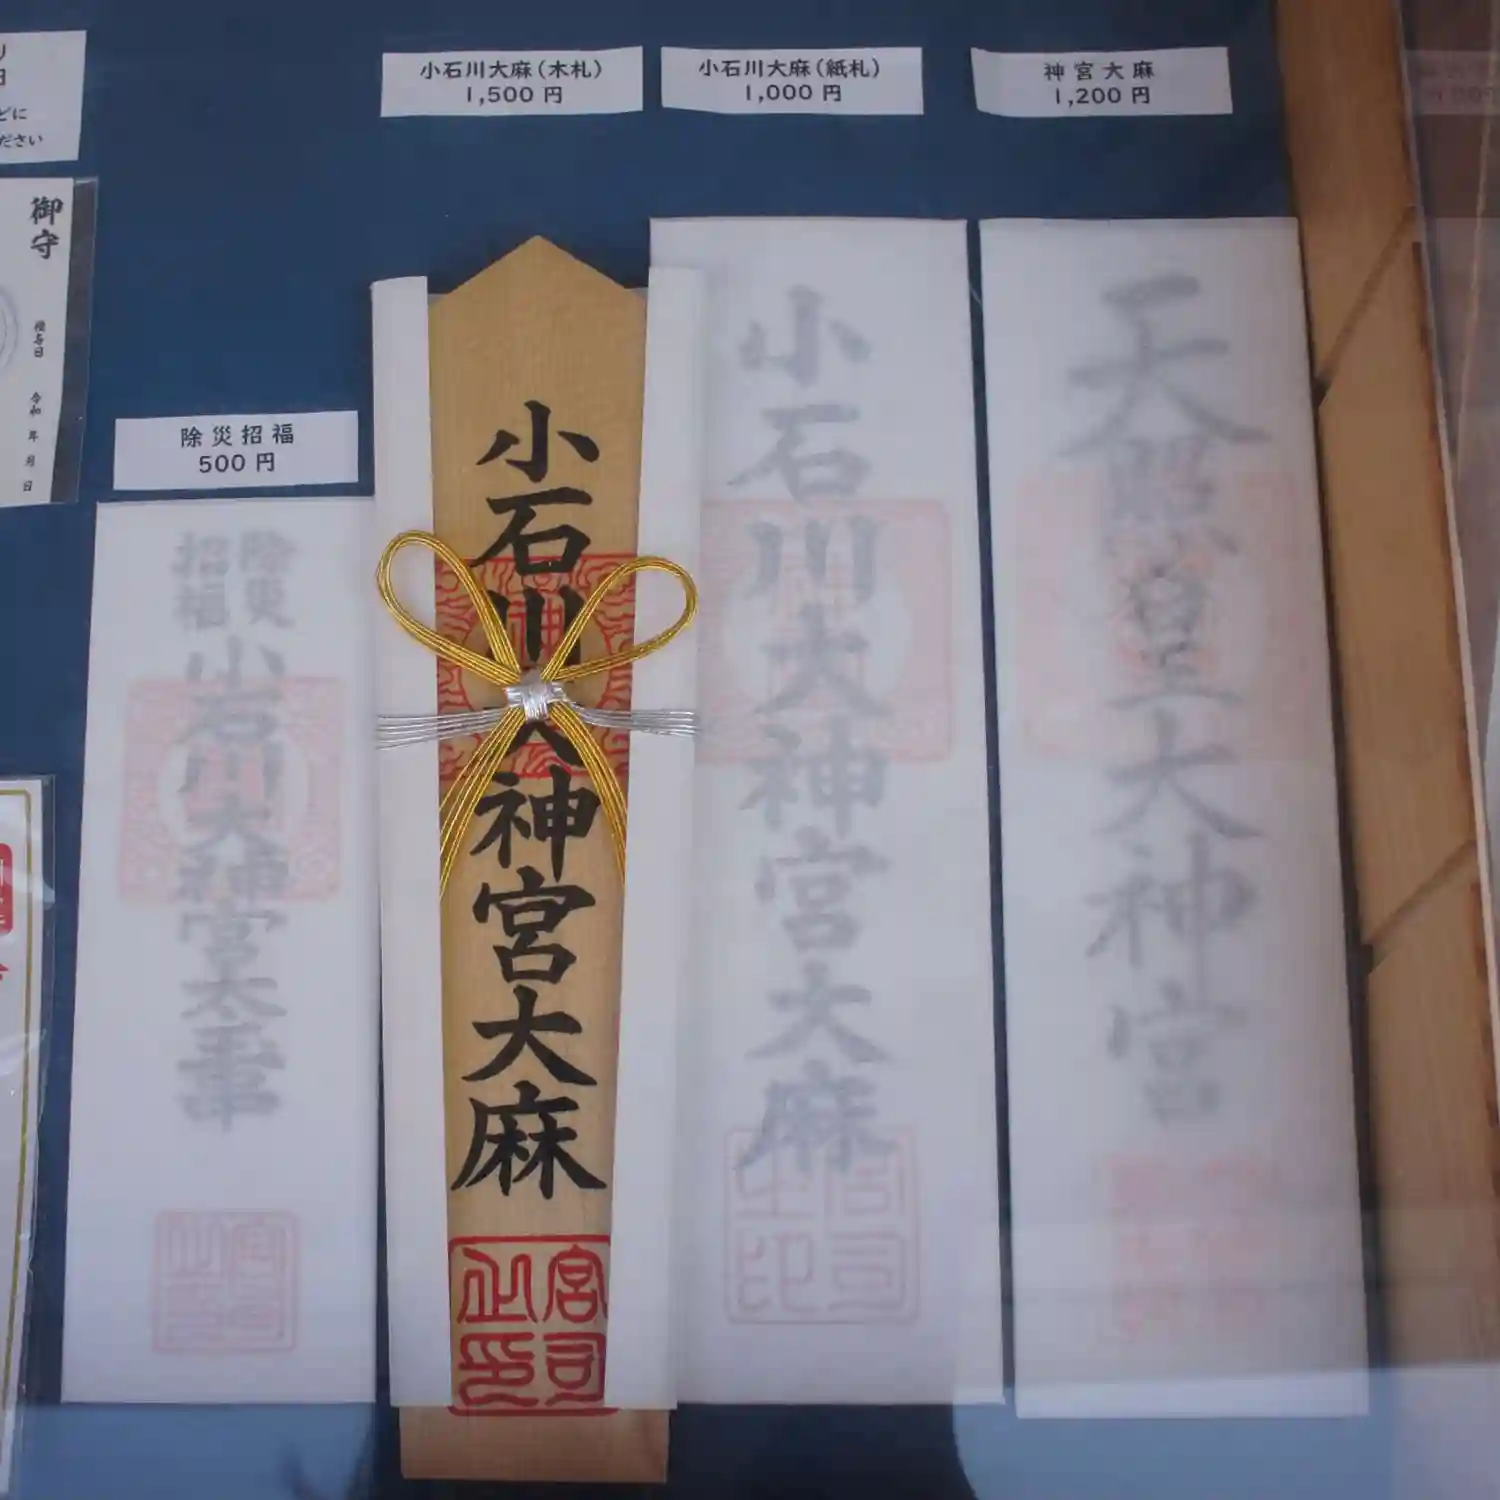 どに
ださい
御守
令和
年
月
日
小石川大麻（木札）
1,500 円
小石川大麻（紙札）
1,000 円
神宮大麻
1,200 円
除災招福
500 円
除災
招福
小石川大神宮太玉串
小石川大神宮大麻
宮司之印
小石川大神宮大麻
宮司之印
天照皇大神宮